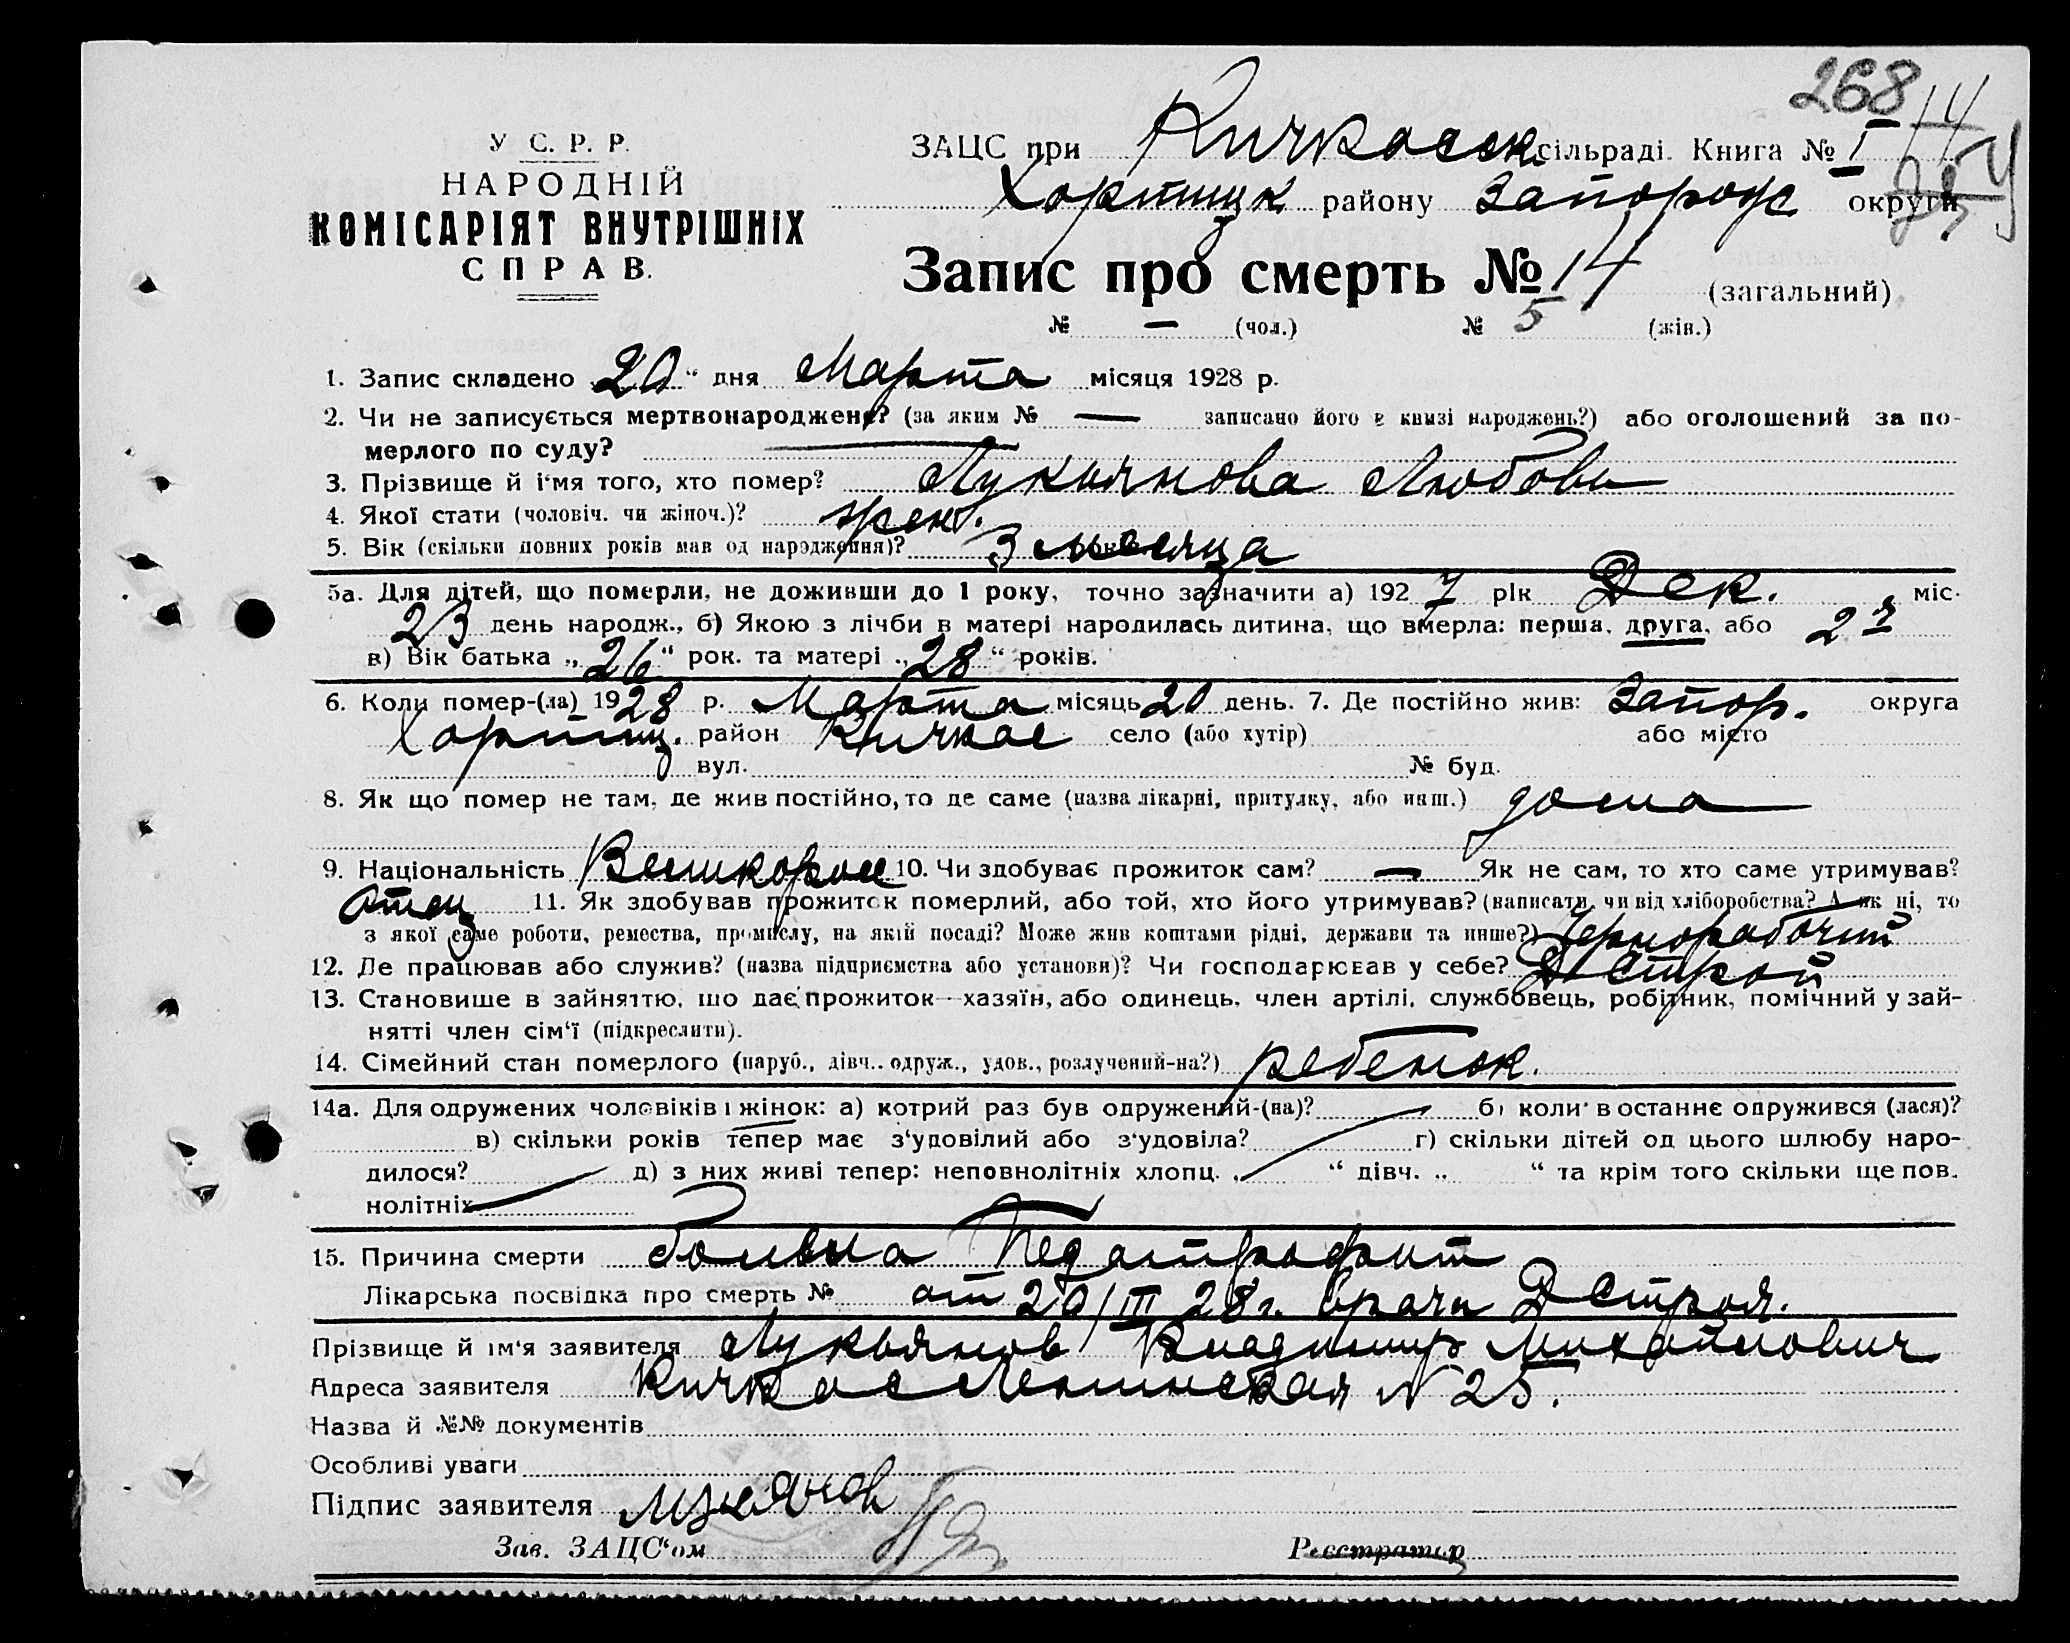 268
14
У. С. Р. Р.
НАРОДНІЙ
КОМІСАРІЯТ ВНУТРІШНІХ
СПРАВ.
ЗАЦС при Кичкасск сільраді. Книга № I
Хортицк району Запорож округи
Запис про смерть № 14 (загальний)
№ — (чол.) № 5 (жін.)
1. Запис складено „20“ дня Марта місяця 1928 р.
2. Чи не записується мертвонароджене? (за яким № — записано його в книзі народжень?) або оголошений за по-
мерлого по суду? —
3. Прізвище й і'мя того, хто помер? Лукьянова Любовь
4. Якої стати (чоловіч. чи жіноч.)? жен.
5. Вік (скільки повних років мав од народження)? 3 месяца
5а. Для дітей, що померли, не доживши до 1 року, точно зазначити а) 1927 рік Дек. міс.
23 день народж., б) Якою з лічби в матері народилась дитина, що вмерла: перша, друга, або 2я
в) Вік батька „26“ рок. та матері „28“ років.
6. Коли помер-(ла) 1928 р. Марта місяць 20 день. 7. Де постійно жив: Запор. округа
Хортиц. район Кичкас село (або хутір) або місто
вул. № буд.
8. Як що помер не там, де жив постійно, то де саме (назва лікарні, притулку, або инш.) дома
9. Національність Великорос 10. Чи здобуває прожиток сам? — Як не сам, то хто саме утримував?
отец 11. Як здобував прожиток померлий, або той, хто його утримував? (написати, чи від хліборобства? А як ні, то
з якої саме роботи, ремества, промислу, на якій посаді? Може жив коштами рідні, держави та инше?) Чернорабочий
12. Де працював або служив? (назва підприємства або установи)? Чи господарював у себе? Д Строй
13. Становище в зайняттю, що дає прожиток—хазяїн, або одинець, член артілі, службовець, робітник, помічний у зай-
нятті член сім'ї (підкреслити).
14. Сімейний стан померлого (паруб., дівч., одруж., удов., розлучений-на?) ребенок.
14а. Для одружених чоловіків і жінок: а) котрий раз був одружений-(на)? б) коли в останнє одружився (лася)?
в) скільки років тепер має з'удовілий або з'удовіла? г) скільки дітей од цього шлюбу наро-
дилося? д) з них живі тепер: неповнолітніх хлопц. „ “ дівч. „ “ та крім того скільки ще пов.
нолітніх
15. Причина смерти больна Педатрофит
Лікарська посвідка про смерть № от 20/III 28 г. врача Д Строя.
Прізвище й ім'я заявителя Лукьянов Владимир Михайлович
Адреса заявителя Кичкас Ленинская N 25.
Назва й №№ документів
Особливі уваги
Підпис заявителя Лукянов
Зав. ЗАЦС'ом
Реєстратор